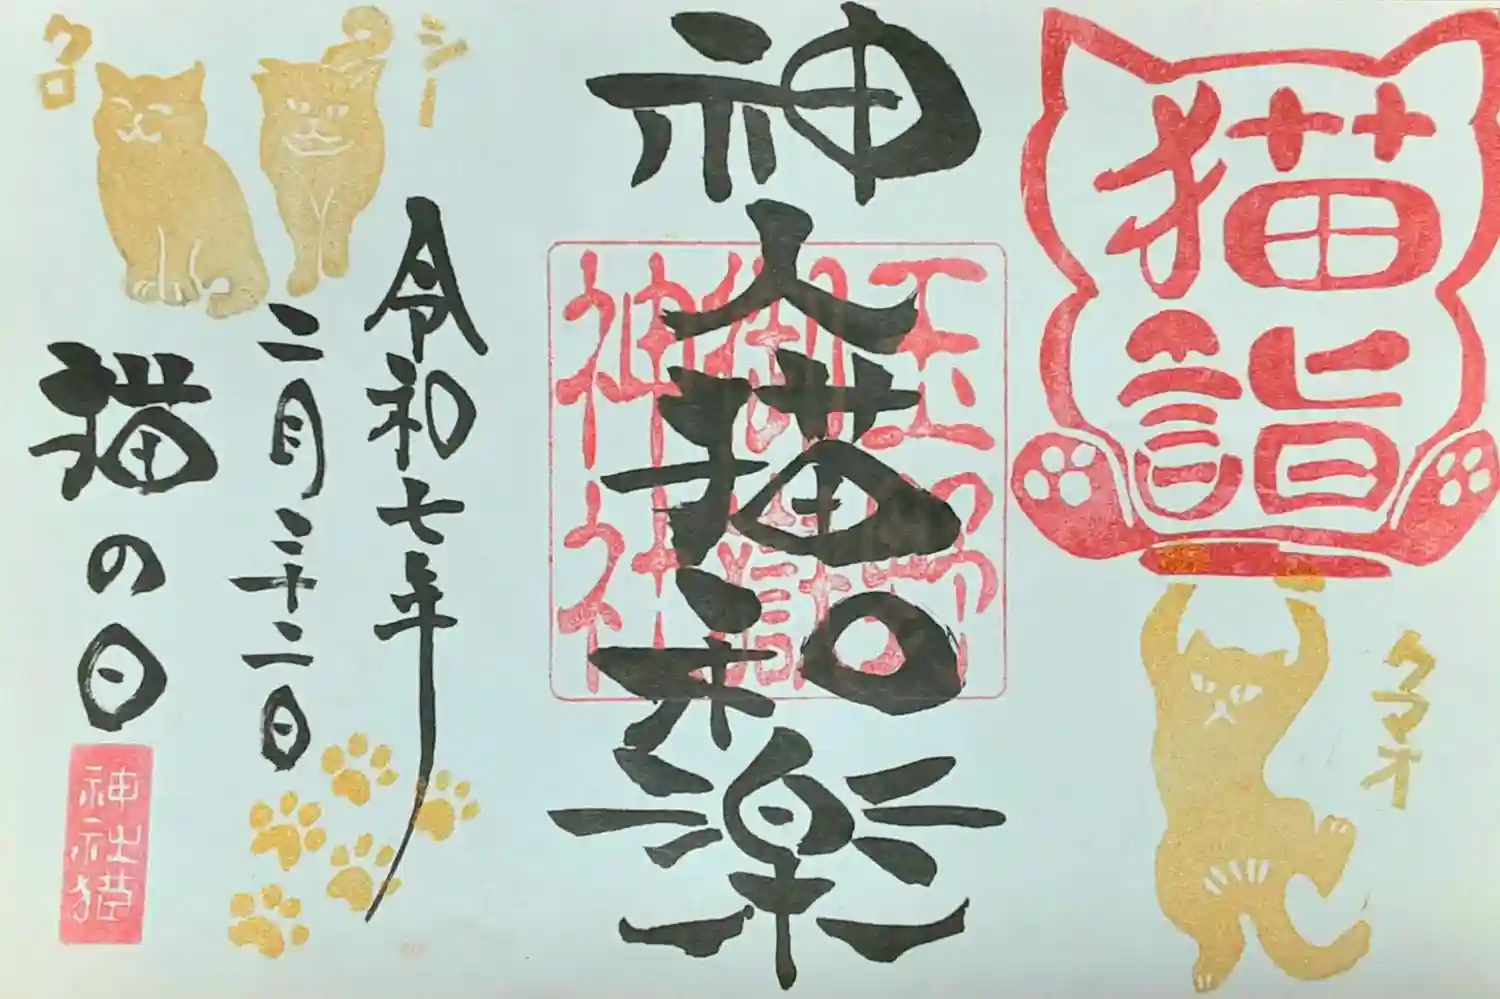 猫詣
クマオ
神人猫和楽
玉野
御嶽
神社
令和七年
二月二十二日
猫の日
神社猫
シー
クロ